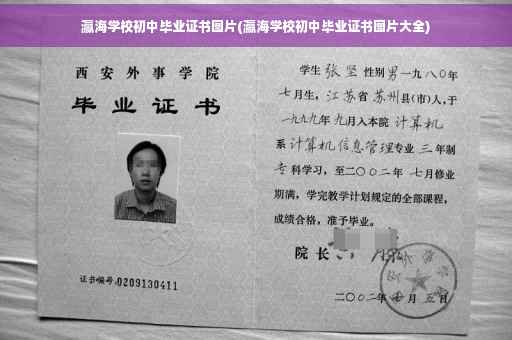 瀛海学校初中毕业证书图片(瀛海学校初中毕业证书图片大全)
西安外事学院
毕业证书
证书编号:0209130411
学生张坚性别男一九八〇年
七月生，江苏省苏州县(市)人，于
一九九九年九月入本院计算机
系计算机信息管理专业三年制
专科学习，至二〇〇二年七月修业
期满，学完教学计划规定的全部课程，
成绩合格，准予毕业。
院长
二〇〇二年 月五日